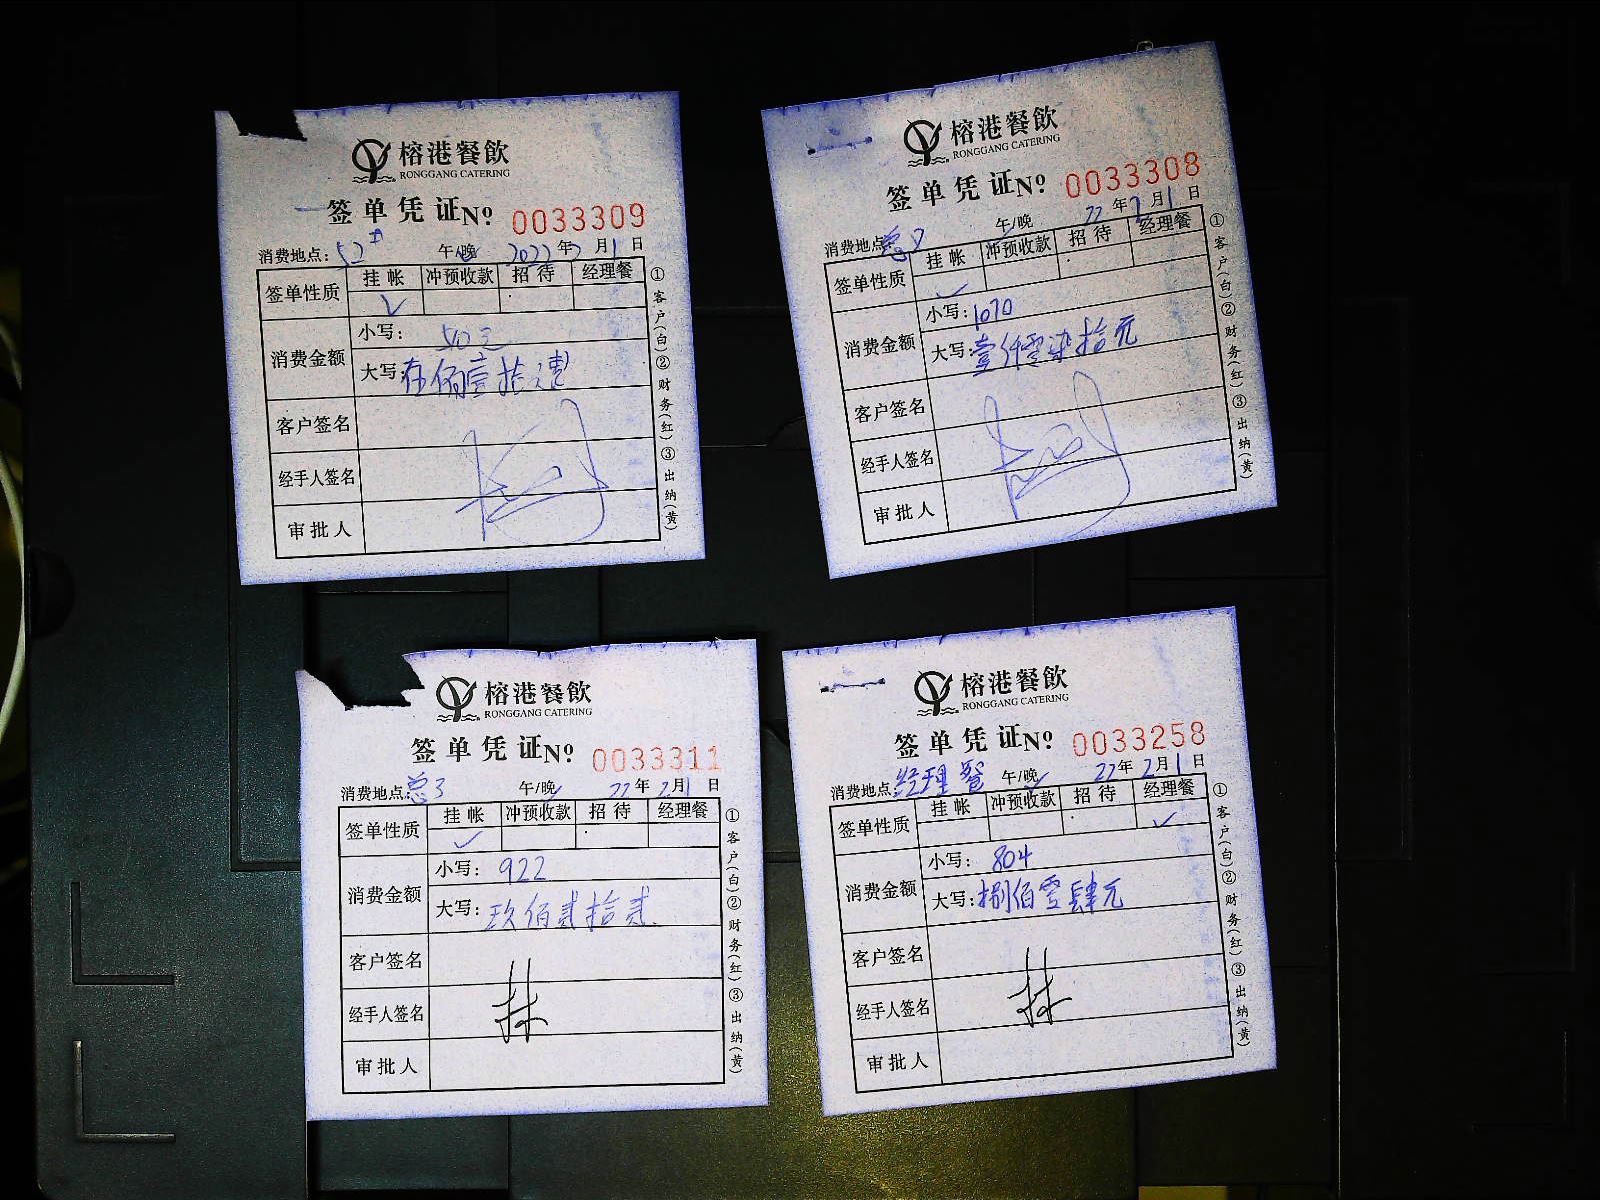 榕港餐飲
RONGGANG CATERING
签单凭证No 0033309
消费地点: 午/晚 2022年2月1日
签单性质 挂帐 冲预收款 招待 经理餐
✓
消费金额 小写:
大写: 伍佰壹拾
客户签名
经手人签名
审批人
①客户(白)②财务(红)③出纳(黄)
榕港餐飲
RONGGANG CATERING
签单凭证No 0033308
消费地点: 午/晚 22年2月1日
签单性质 挂帐 冲预收款 招待 经理餐
✓
消费金额 小写: 1070
大写: 壹仟零柒拾元
客户签名
经手人签名
审批人
①客户(白)②财务(红)③出纳(黄)
榕港餐飲
RONGGANG CATERING
签单凭证No 0033311
消费地点: 总3 午/晚 22年2月1日
签单性质 挂帐 冲预收款 招待 经理餐
✓
消费金额 小写: 922
大写: 玖佰贰拾贰
客户签名
经手人签名 林
审批人
①客户(白)②财务(红)③出纳(黄)
榕港餐飲
RONGGANG CATERING
签单凭证No 0033258
消费地点: 经理餐 午/晚 22年2月1日
签单性质 挂帐 冲预收款 招待 经理餐
✓
消费金额 小写: 804
大写: 捌佰零肆元
客户签名
经手人签名 林
审批人
①客户(白)②财务(红)③出纳(黄)